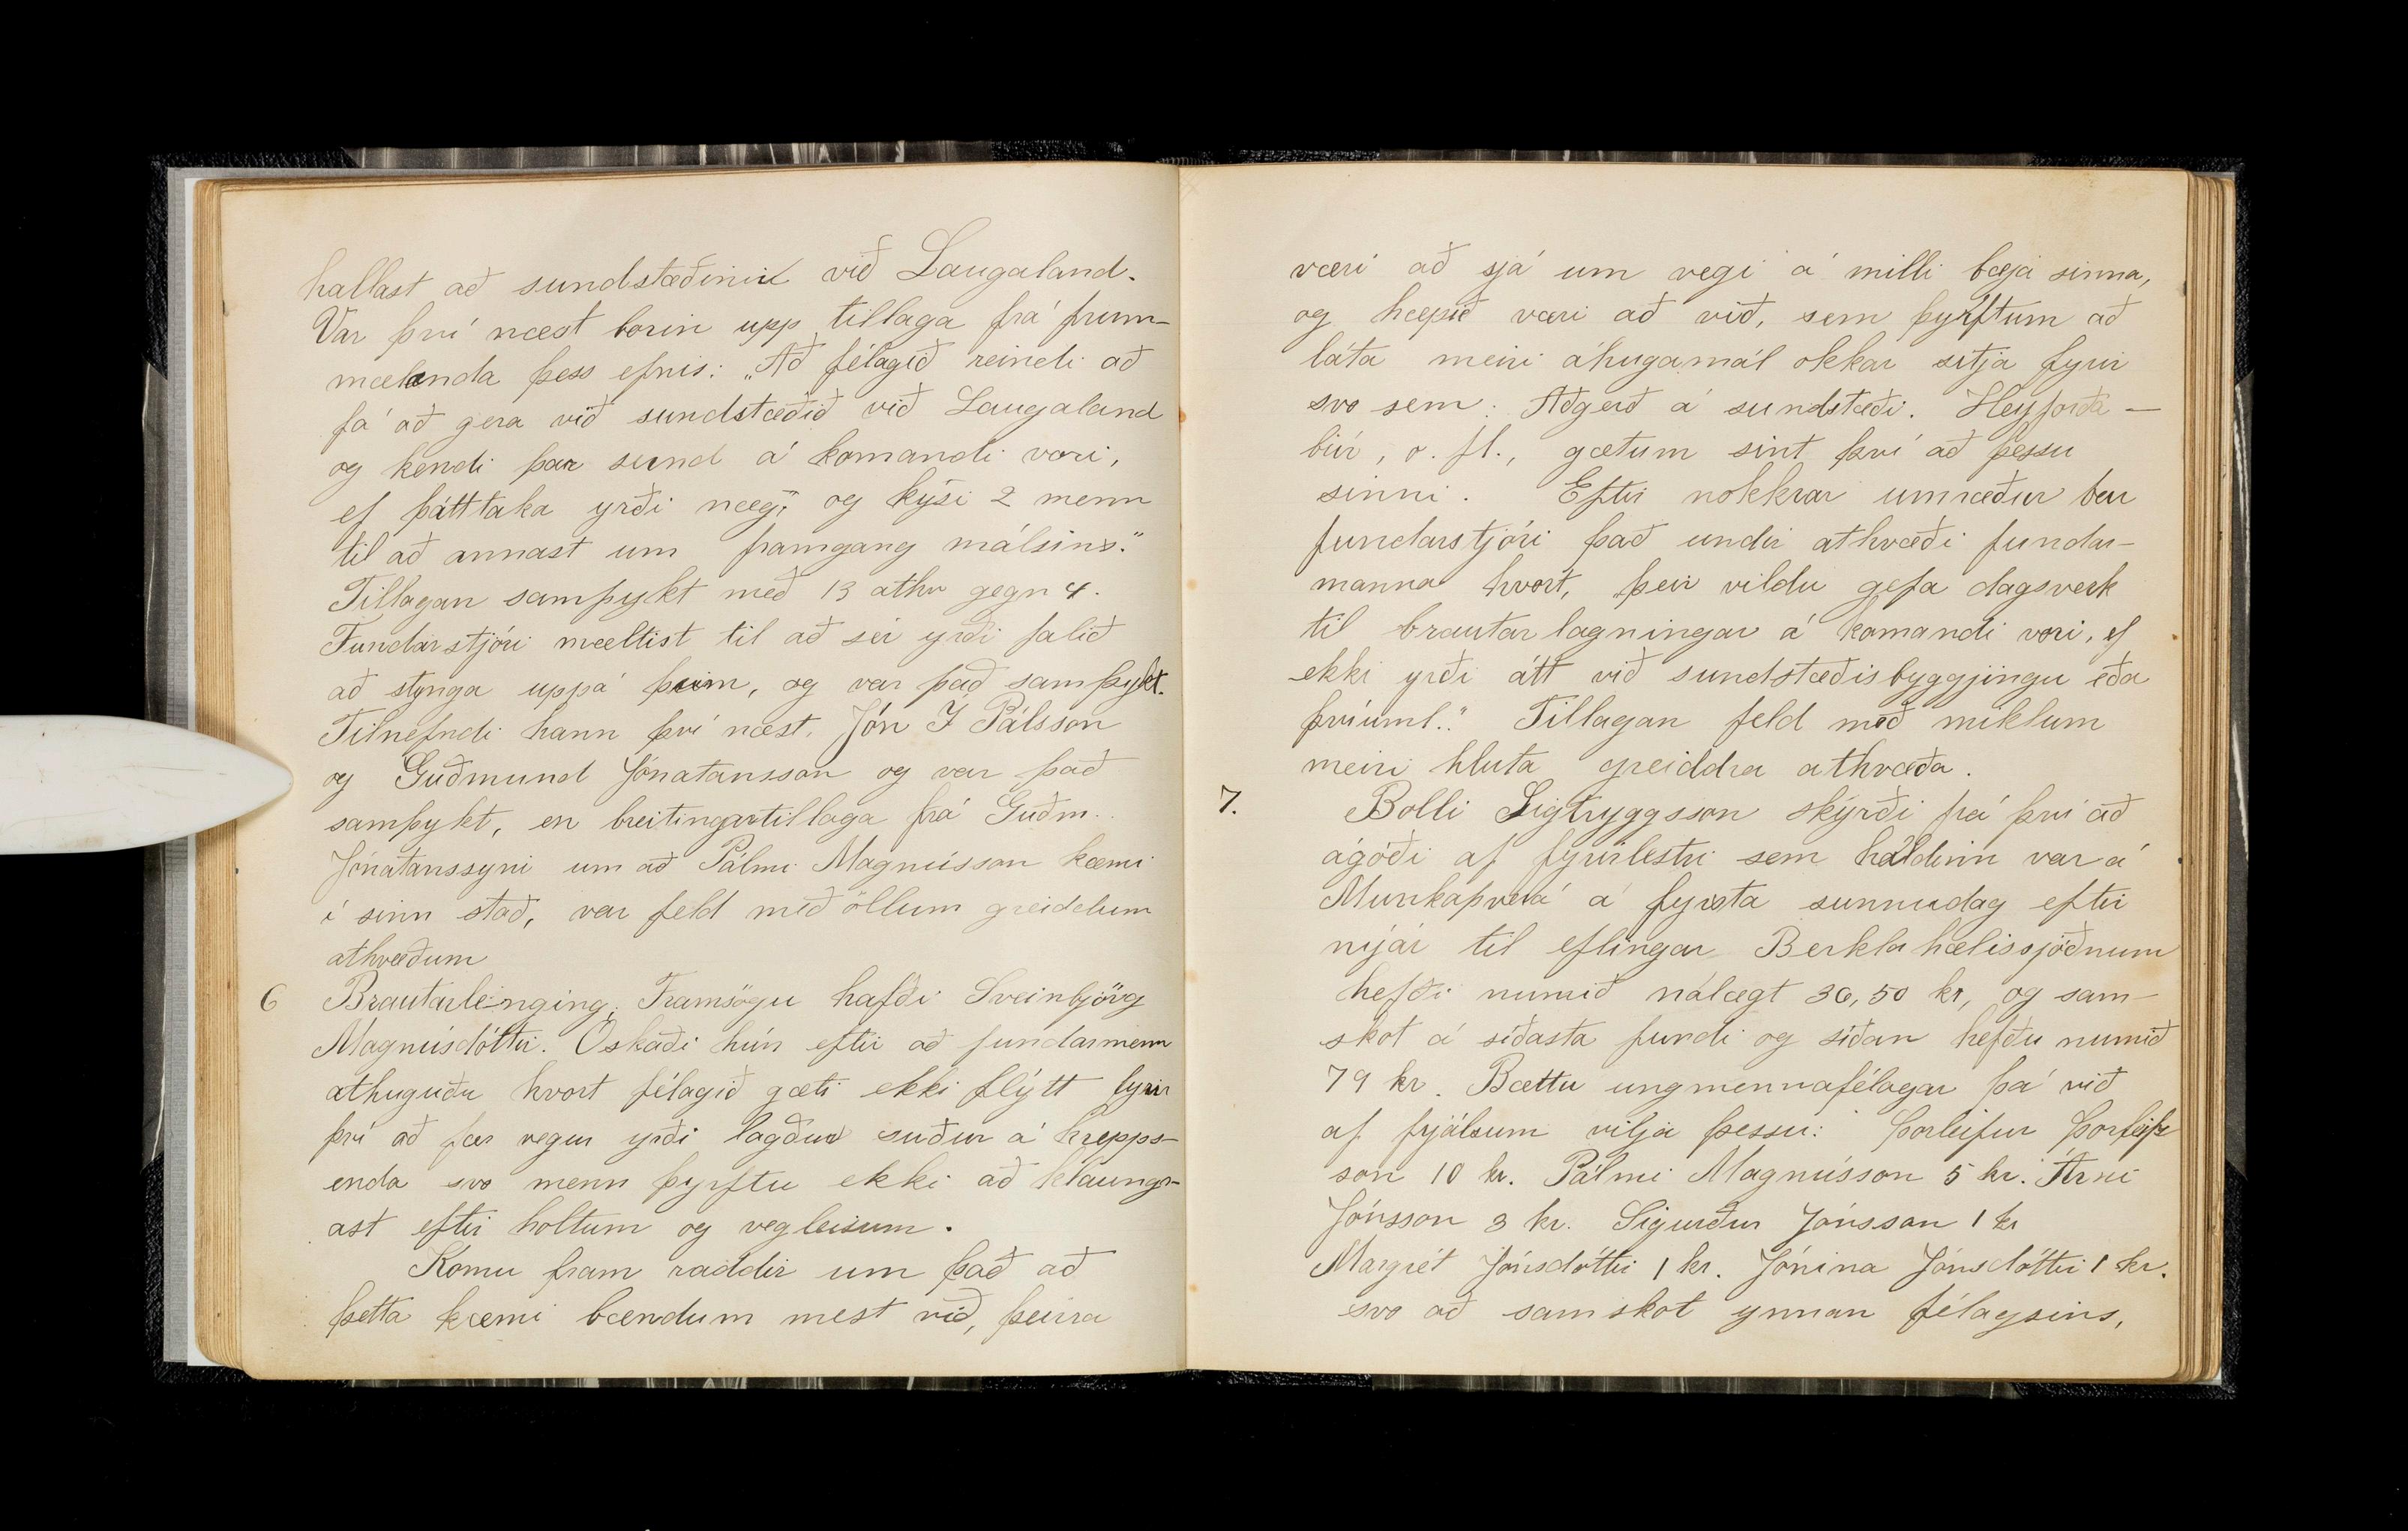 hallast að sundstæðinu við Laugaland.
Var því næst borin upp tillaga frá frum-
mælenda þess efnis: „Að félagið reindi að
fá að gera við sundstæðið við Laugaland
og kendi þar sund á komandi vori,
ef þátttaka yrði næg; og kýsi 2 menn
til að annast um framgang málsins."
Tillagan samþykt með 13 athv gegn 4.
Fundarstjóri mæltist til að sér yrði falið
að stynga uppá þeim, og var það samþykt.
Tilnefndi hann því næst. Jón I Pálsson
og Guðmund Jónatansson og var það
samþykt, en breitingartillaga frá Guðm.
Jónatanssyni um að Pálmi Magnússon kæmi
í sinn stað, var feld með öllum greiddum
athvæðum
6 Brautarleinging. Framsögu hafði Sveinbjörg
Magnúsdóttir. Óskaði hún eftir að fundarmenn
athuguðu hvort félagið gæti ekki flýtt fyrir
því að fær vegur yrði lagður suður á hrepps-
enda svo menn þyrftu ekki að klaungr-
ast eftir holtum og vegleisum.
Komu fram raddir um það að
þetta kæmi bændum mest við, þeirra
væri að sjá um vegi á milli bæja sinna,
og hæpið væri að við, sem þyrftum að
láta meiri áhugamál okkar sitja fyrir
svo sem: Aðgerð á sundstæði. Heyforða-
búr, o. fl., gætum sint því að þessu
sinni. Eftir nokkrar umræður bar
fundarstjóri það undir athvæði fundar-
manna hvort, þeir vildu gefa dagsverk
til brautarlagningar á komandi vori, ef
ekki yrði átt við sundstæðisbyggjingu eða
þvíuml." Tillagan feld með miklum
meiri hluta greiddra athvæða.
7. Bolli Sigtryggsson skýrði frá því að
ágóði af fyrirlestri sem haldinn var á
Munkaþverá á fyrsta sunnudag eftir
nýár til eflingar Berklahælissjóðnum
hefði numið nálægt 36,50 kr, og sam-
skot á síðasta fundi og síðan hefðu numið
79 kr. Bættu ungmennafélagar þá við
af frjálsum vilja þessu: Þorleifur Þorleifs
son 10 kr. Pálmi Magnússon 5 kr. Árni
Jónsson 3 kr. Sigurður Jónsson 1 kr
Margrét Jónsdóttir 1 kr. Jónina Jónsdóttir 1 kr.
svo að samskot ynnan félagsins,